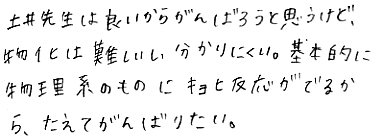 土井先生は良いからがんばろうと思うけど、
物化は難しいし分かりにくい。基本的に
物理系のものにキョヒ反応がでるか
ら、たえてがんばりたい。